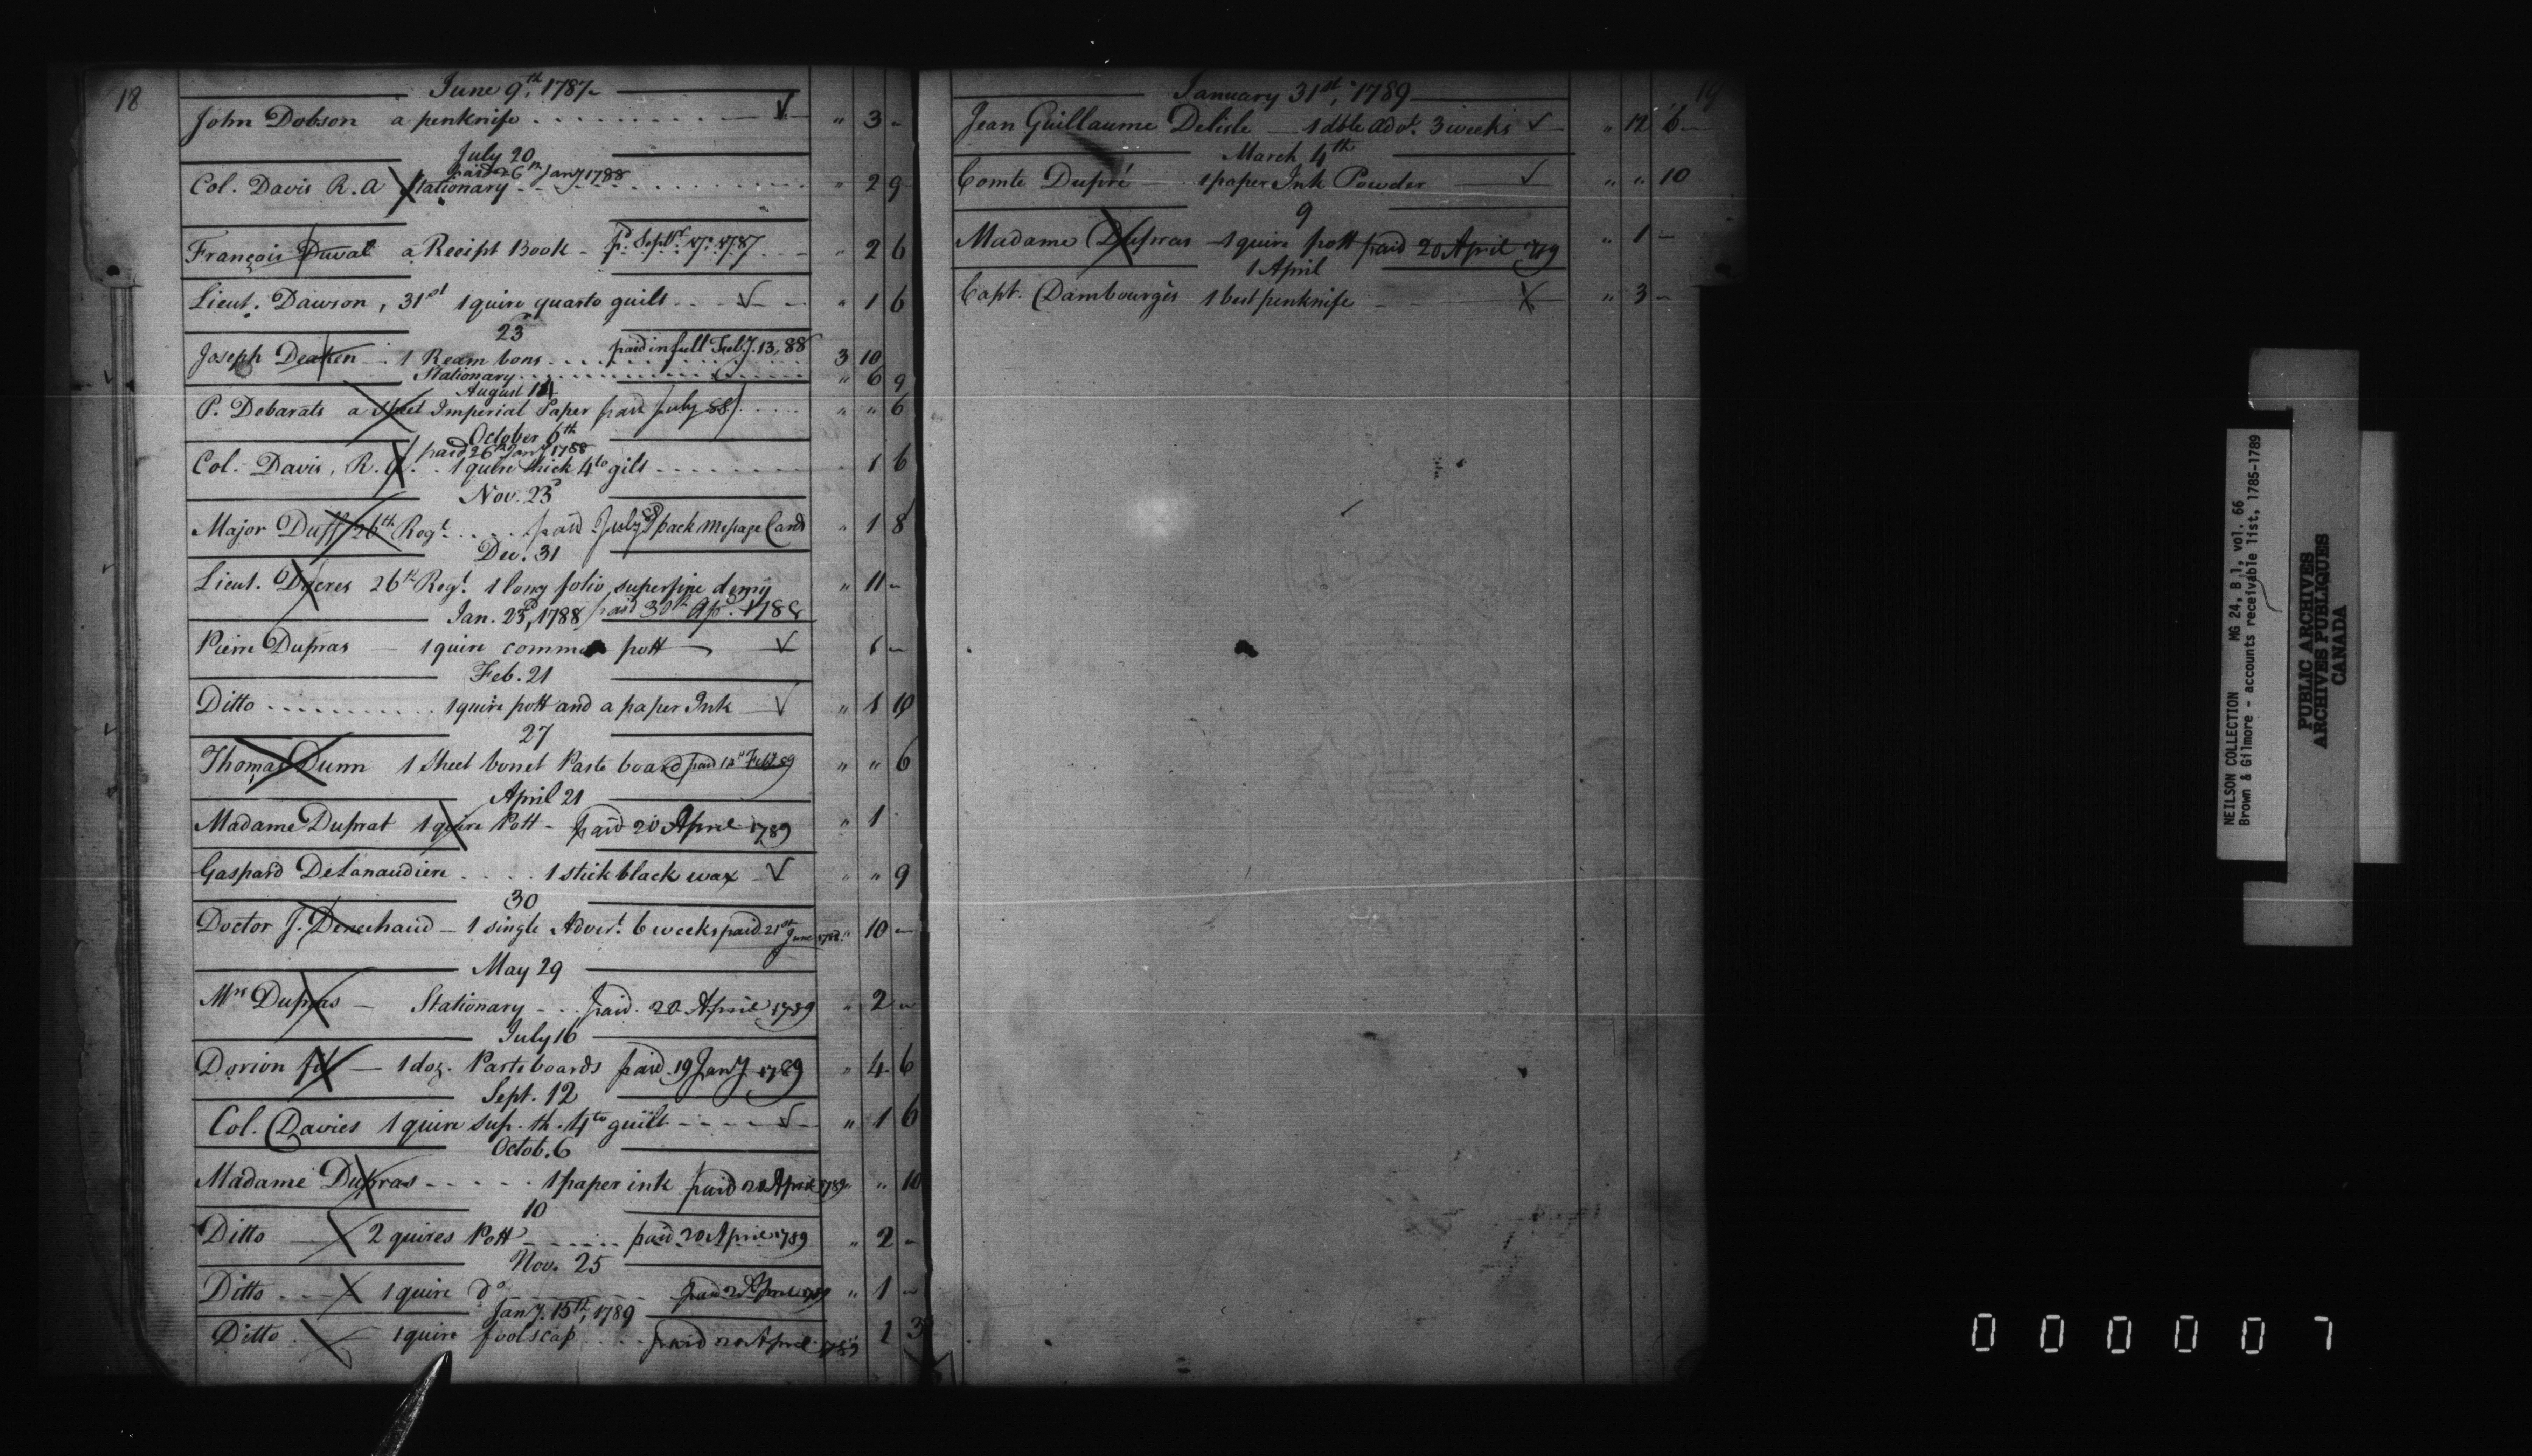 18
June 9th, 1787
John Dobson a penknife . . . . . . . . . √ " 3 -
July 20
paid 26th Jany 1788
Col. Davis R. A Stationary . . . . . . " 2 9
François Duval a Receipt Book - pd. Septr. 17. 1787 " 2 6
Lieut. Dawson, 31st 1 quire quarto guilt . . √ " 1 6
23d
Joseph Deaken 1 Ream bons . . . paid in full Feby. 13, 88 3 10
Stationary . . . . . . " 6 9
August 14
P. Debarats a sheet Imperial Paper paid July 88 . . . " " 6
October 6th
paid 26th Jany 1788
Col. Davis, R. A. . 1 quire thick 4to gilt . . . . . . 1 6
Nov. 23d
Major Duff 26th Regt. . . . . paid July 88 1 pack Message Cards " 1 8
Dec. 31
Lieut. Dacres 26th Regt. 1 long folio, superfine demy " 11 -
Jan. 23d, 1788 paid 30th Ap. 1788
Pierre Dupras — 1 quire common pott √ 1 -
Feb. 21
Ditto . . . . . . . . . . 1 quire pott and a paper Ink √ " 1 10
27
Thomas Dunn 1 Sheet bonet Paste board paid 12 Feby. 89 " " 6
April 21
Madame Duprat 1 quire Pott - paid 20 April 1789 " 1
Gaspard Delanaudiere . . . . 1 stick black wax √ " " 9
30
Doctor J. Denechaud — 1 single Advert. 6 weeks paid 21st June 1788 " 10 -
May 29
Mrs Dupras — Stationary - . . paid 20 April 1789 " 2 -
July 16
Dorion fils — 1 doz. Pasteboards paid 19 Jany 1789 " 4 6
Sept. 12
Col. Davies 1 quire sup. th. 4to guilt - - - - √ " 1 6
Octob. 6
Madame Dupras - - - - - 1 paper ink paid 20 April 1789 " " 10
10
Ditto 2 quires Pott . . . . . . paid 20 April 1789 " 2 -
Nov. 25
Ditto 1 quire do paid 20 April 1789 " 1 -
Jany. 15th, 1789
Ditto 1 quire foolscap . . . . paid 20 April 1789 1 3
19
January 31st, 1789
Jean Guillaume Delisle — 1 dble advt. 3 weeks √ " 12 6
March 4th
Comte Dupré 1 paper Ink Powder √ " " 10
9
Madame Dupras 1 quire pott paid 20 April 1789 " 1 -
1 April
Capt. Dambourgès 1 best penknife - " 3 -
NEILSON COLLECTION MG 24, B 1, vol. 66
Brown & Gilmore - accounts receivable list, 1785-1789
PUBLIC ARCHIVES
ARCHIVES PUBLIQUES
CANADA
000007